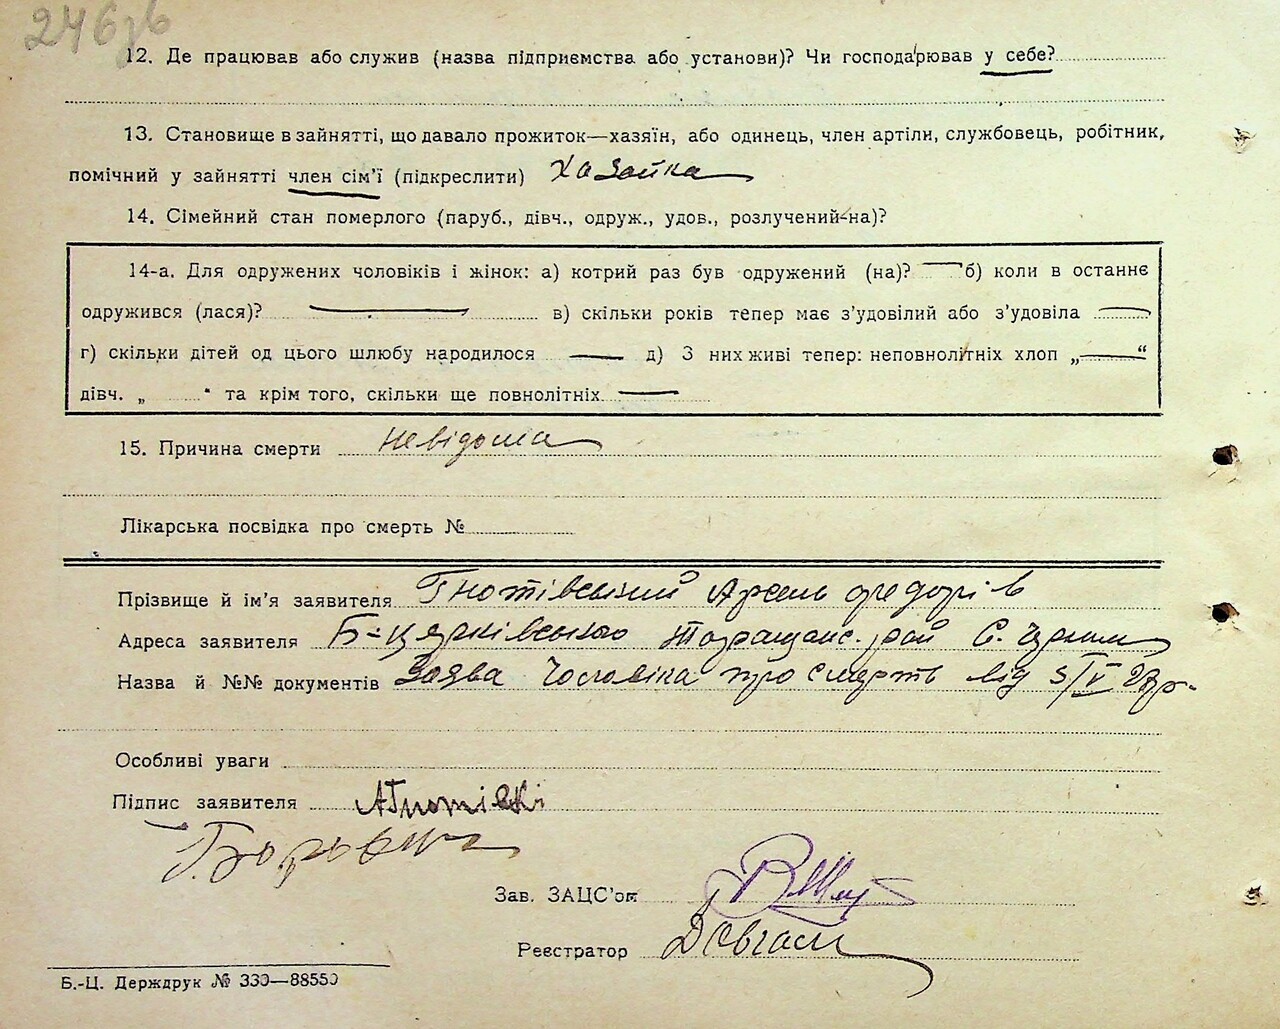 246зв
12. Де працював або служив (назва підприємства або установи)? Чи господарював у себе?
13. Становище в зайнятті, що давало прожиток—хазяїн, або одинець, член артіли, службовець, робітник,
помічний у зайнятті член сім'ї (підкреслити) Хазайка
14. Сімейний стан померлого (паруб., дівч., одруж., удов., розлучений-на)?
14-а. Для одружених чоловіків і жінок: а) котрий раз був одружений (на)? — б) коли в останнє
одружився (лася)? — в) скільки років тепер має з'удовілий або з'удовіла —
г) скільки дітей од цього шлюбу народилося — д) З них живі тепер: неповнолітніх хлоп „—“
дівч. „ “ та крім того, скільки ще повнолітніх —
15. Причина смерти невідома
Лікарська посвідка про смерть №
Прізвище й ім'я заявителя Гнотівський Арсень Федорів
Адреса заявителя Б-Церківського Таращанс. рай С.
Назва й №№ документів Заява Чоловіка про смерть від 5/IV
Особливі уваги
Підпис заявителя АГнотівскі
Зав. ЗАЦС'ом
Реєстратор
Б.-Ц. Держдрук № 330—88550